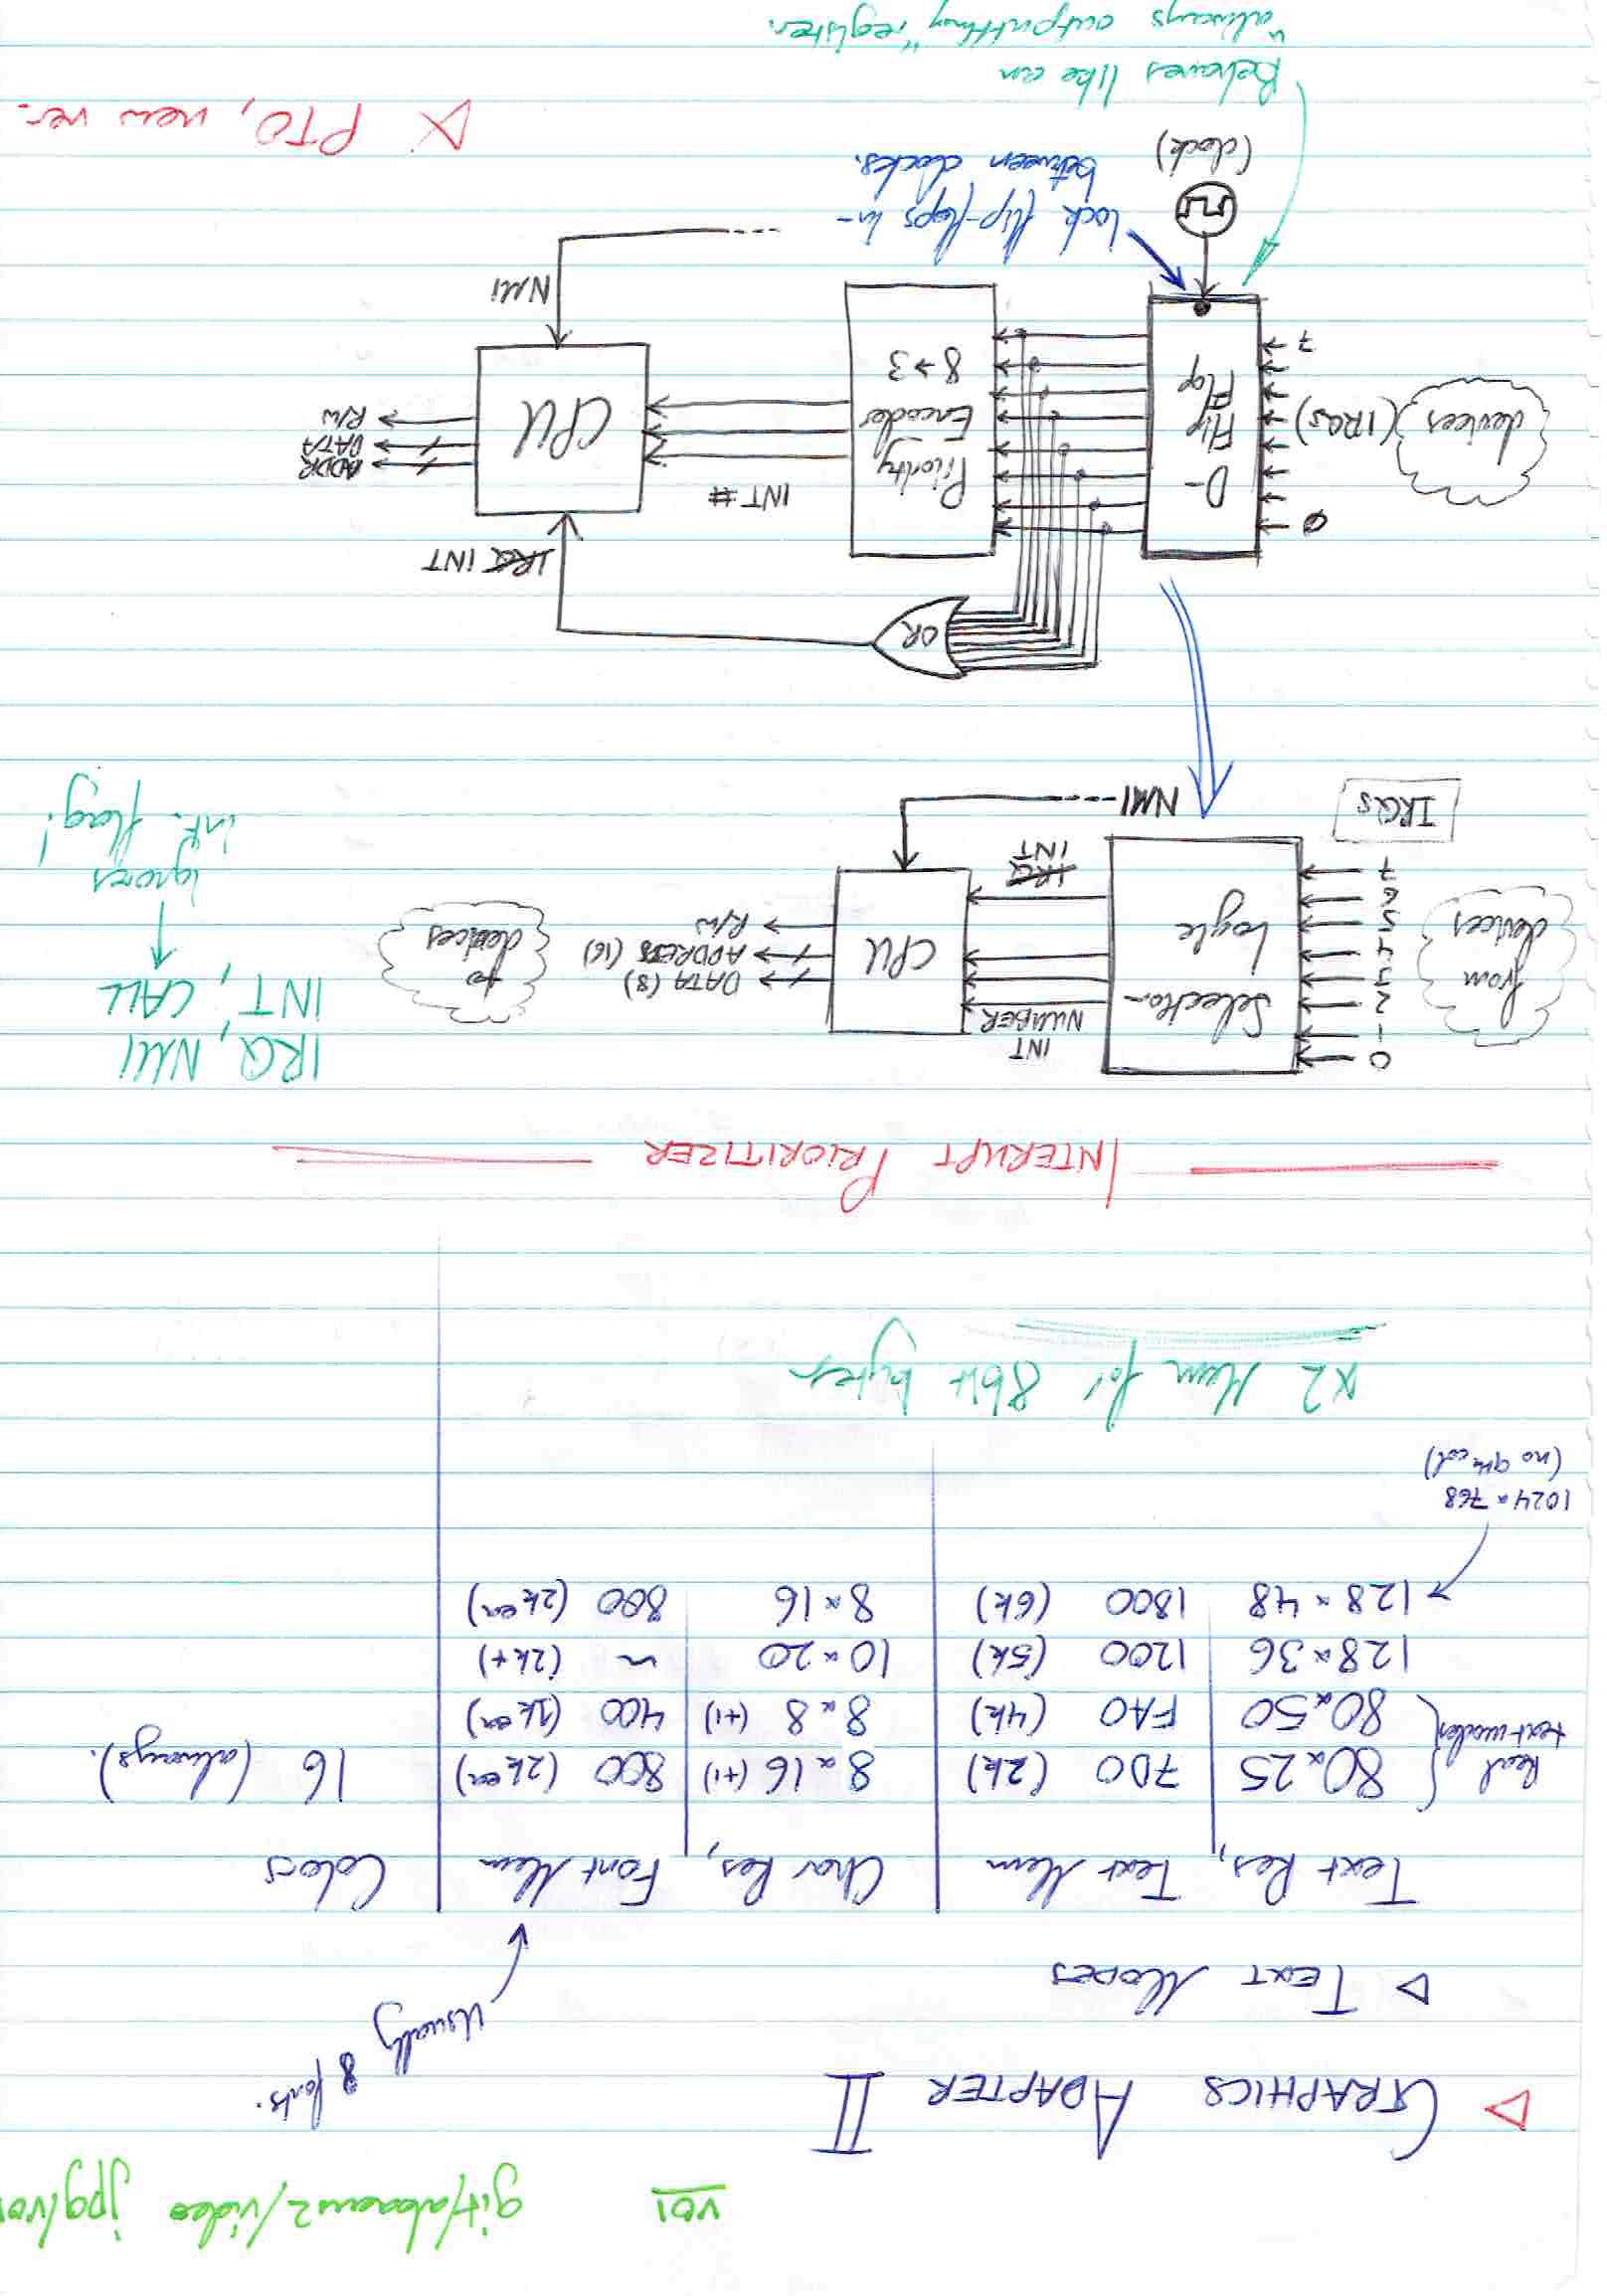 v01 git/abacus2/video jpg/v01
▷ GRAPHICS ADAPTER II
Usually 8 fonts.
▷ TEXT MODES
Text Res, Text Mem Char Res, Font Mem Colors
Real textmodes
80x25 7D0 (2k) 8x16 (+1) 800 (2k ea) 16 (always).
80x50 FA0 (4k) 8x8 (+1) 400 (1k ea)
128x36 1200 (5k) 10x20 ~ (2k+)
128x48 1800 (6k) 8x16 800 (2k ea)
1024x768
(no 9th col)
x2 Mem for 8bit bytes
INTERUPT PRIORITIZER
from devices
0
1
2
3
4
5
6
7
IRQs
Selection
Logic
INT
NUMBER
IRQ
INT
NMI
CPU
DATA (8)
ADDRESS (16)
R/W
to
devices
IRQ, NMI
INT, CALL
ignores
int. flag!
OR
IRQ INT
devices (IRQs)
0
7
D-
Flip
Flop
Priority
Encoder
8→3
INT #
CPU
ADDR
DATA
R/W
NMI
(clock)
lock flip-flops in-
between clocks.
Behaves like an
"always outputting" register.
▷ PTO, new ver.